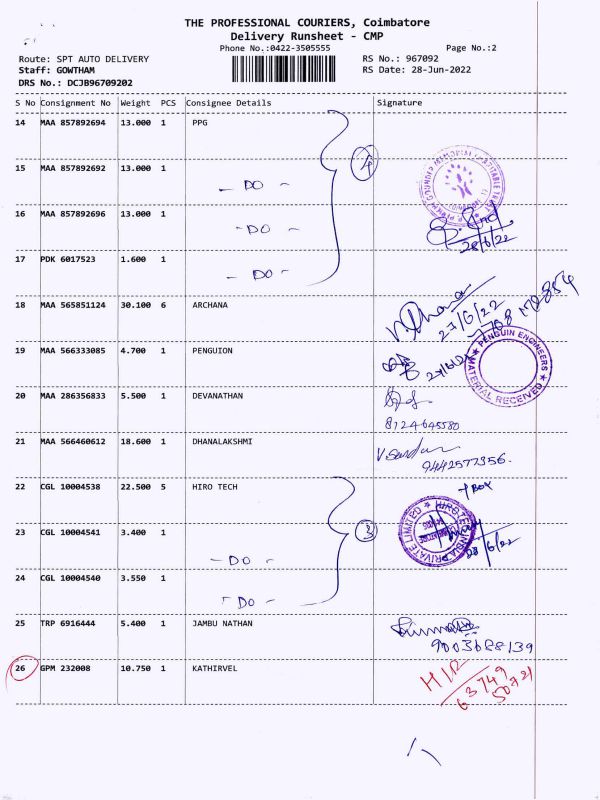 THE PROFESSIONAL COURIERS, Coimbatore
Delivery Runsheet - CMP
Phone No.:0422-3505555
Page No.:2
Route: SPT AUTO DELIVERY
RS No.: 967092
Staff: GOWTHAM
RS Date: 28-Jun-2022
DRS No.: DCJB96709202
S No Consignment No Weight PCS Consignee Details Signature
14 MAA 857892694 13.000 1 PPG
4
15 MAA 857892692 13.000 1
- DO -
16 MAA 857892696 13.000 1
- DO -
28/6/22
17 PDK 6017523 1.600 1
- DO -
18 MAA 565851124 30.100 6 ARCHANA
27/6/22
19 MAA 566333085 4.700 1 PENGUION
PENGUIN ENGINEERS
MATERIAL RECEIVED
20 MAA 286356833 5.500 1 DEVANATHAN
8124645580
21 MAA 566460612 18.600 1 DHANALAKSHMI
9442577356.
22 CGL 10004538 22.500 5 HIRO TECH
BOX
23 CGL 10004541 3.400 1
3
- DO -
28/6/22
24 CGL 10004540 3.550 1
- DO -
25 TRP 6916444 5.400 1 JAMBU NATHAN
9003688139
26 GPM 232008 10.750 1 KATHIRVEL
63749
50721